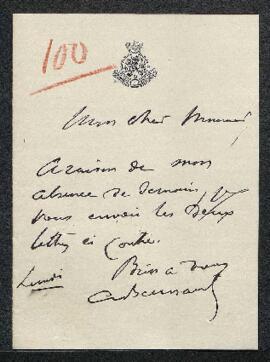 100
Mon cher Monsieur
A raison de mon
absence de demain, je
vous envoie les deux
lettres ci contre.
Bien à vous
Lundi